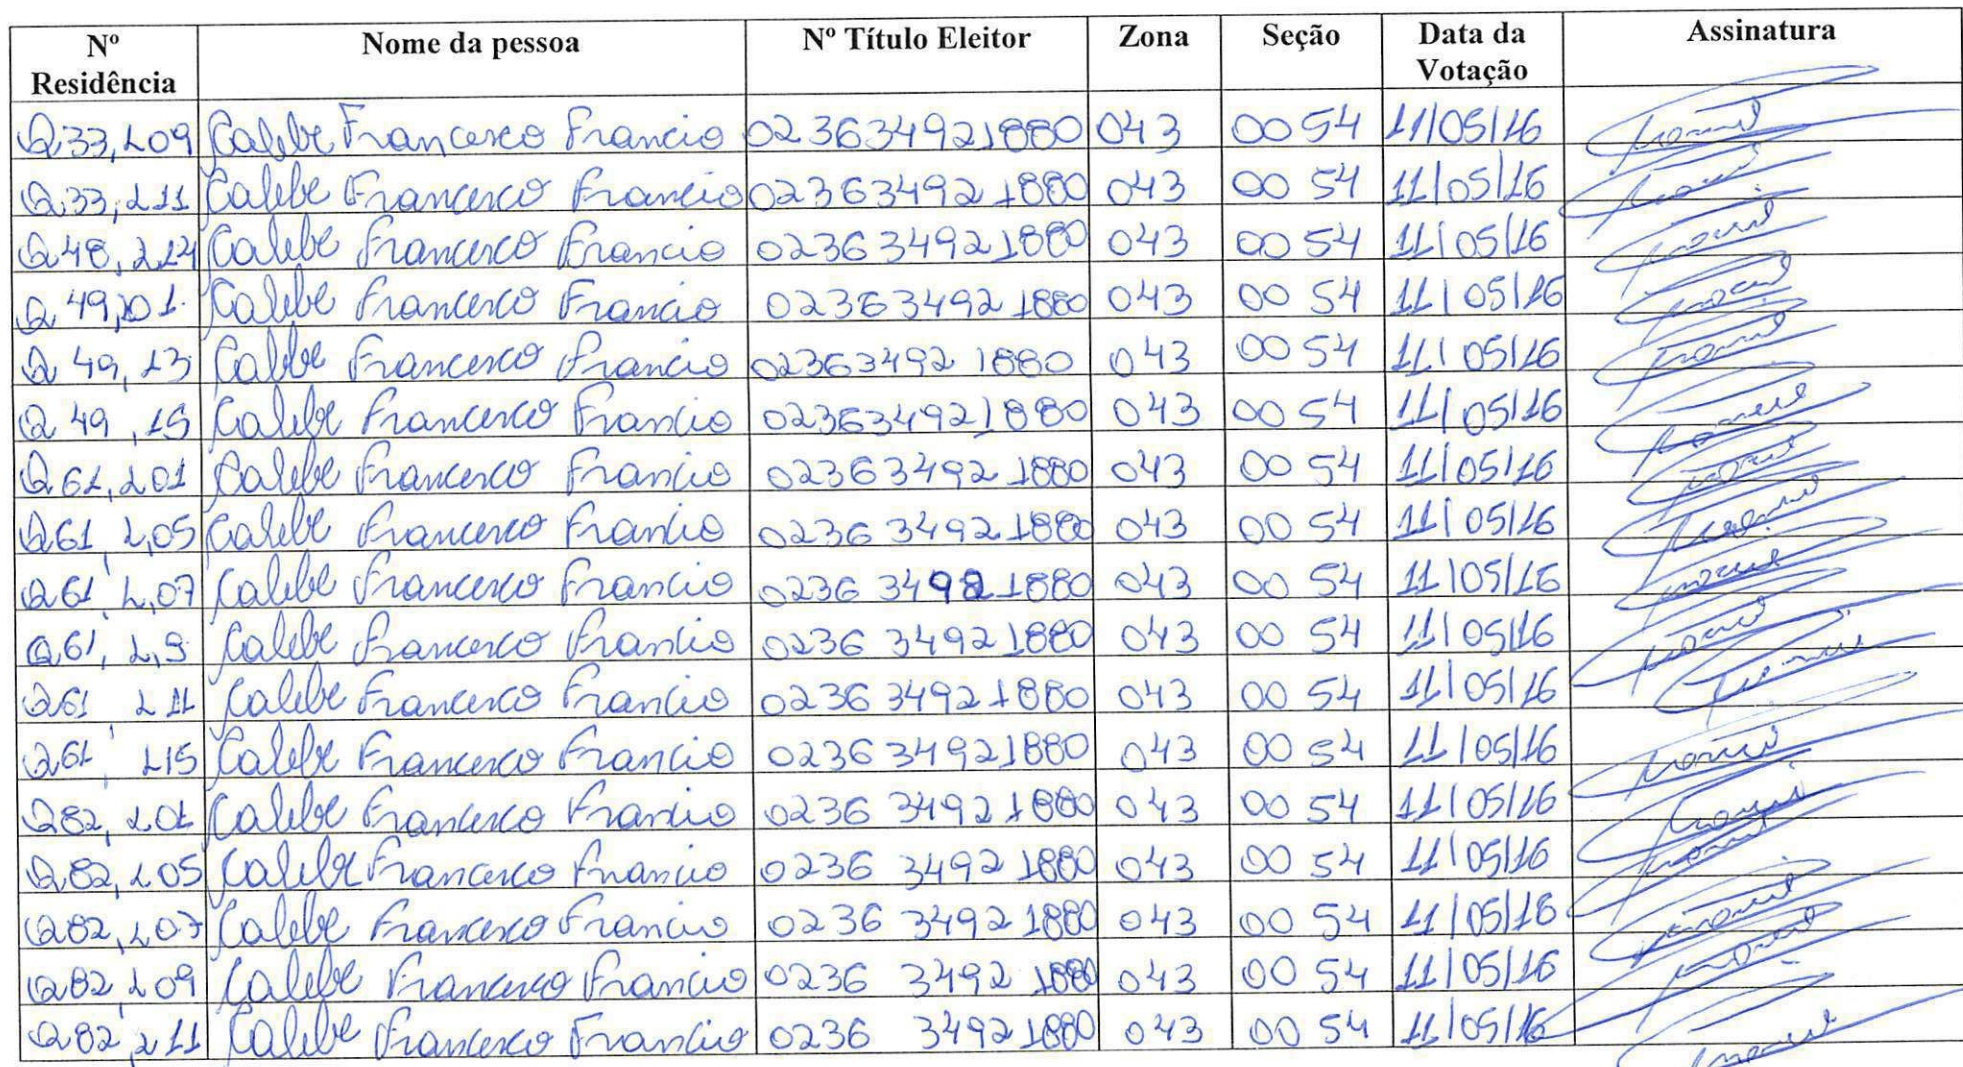 Nº Residência Nome da pessoa Nº Título Eleitor Zona Seção Data da Votação Assinatura
Q33, L09 Calebe Francesco Francio 023634921880 043 0054 11/05/16
Q33, L11 Calebe Francesco Francio 023634921880 043 0054 11/05/16
Q48, L14 Calebe Francesco Francio 023634921880 043 0054 11/05/16
Q49, 01 Calebe Francesco Francio 023634921880 043 0054 11/05/16
Q49, 13 Calebe Francesco Francio 023634921880 043 0054 11/05/16
Q49, 15 Calebe Francesco Francio 023634921880 043 0054 11/05/16
Q61, L01 Calebe Francesco Francio 023634921880 043 0054 11/05/16
Q61, L,05 Calebe Francesco Francio 0236 34921880 043 0054 11/05/16
Q61, L,07 Calebe Francesco Francio 0236 34921880 043 0054 11/05/16
Q61, L,9 Calebe Francesco Francio 0236 34921880 043 0054 11/05/16
Q61, L11 Calebe Francesco Francio 0236 34921880 043 0054 11/05/16
Q61, L15 Calebe Francesco Francio 0236 34921880 043 0054 11/05/16
Q82, L01 Calebe Francesco Francio 0236 34921880 043 0054 11/05/16
Q82, L05 Calebe Francesco Francio 0236 3492 1880 043 0054 11/05/16
Q82, L07 Calebe Francesco Francio 0236 3492 1880 043 0054 11/05/16
Q82, L09 Calebe Francesco Francio 0236 3492 1880 043 0054 11/05/16
Q82, L11 Calebe Francesco Francio 0236 34921880 043 0054 11/05/16